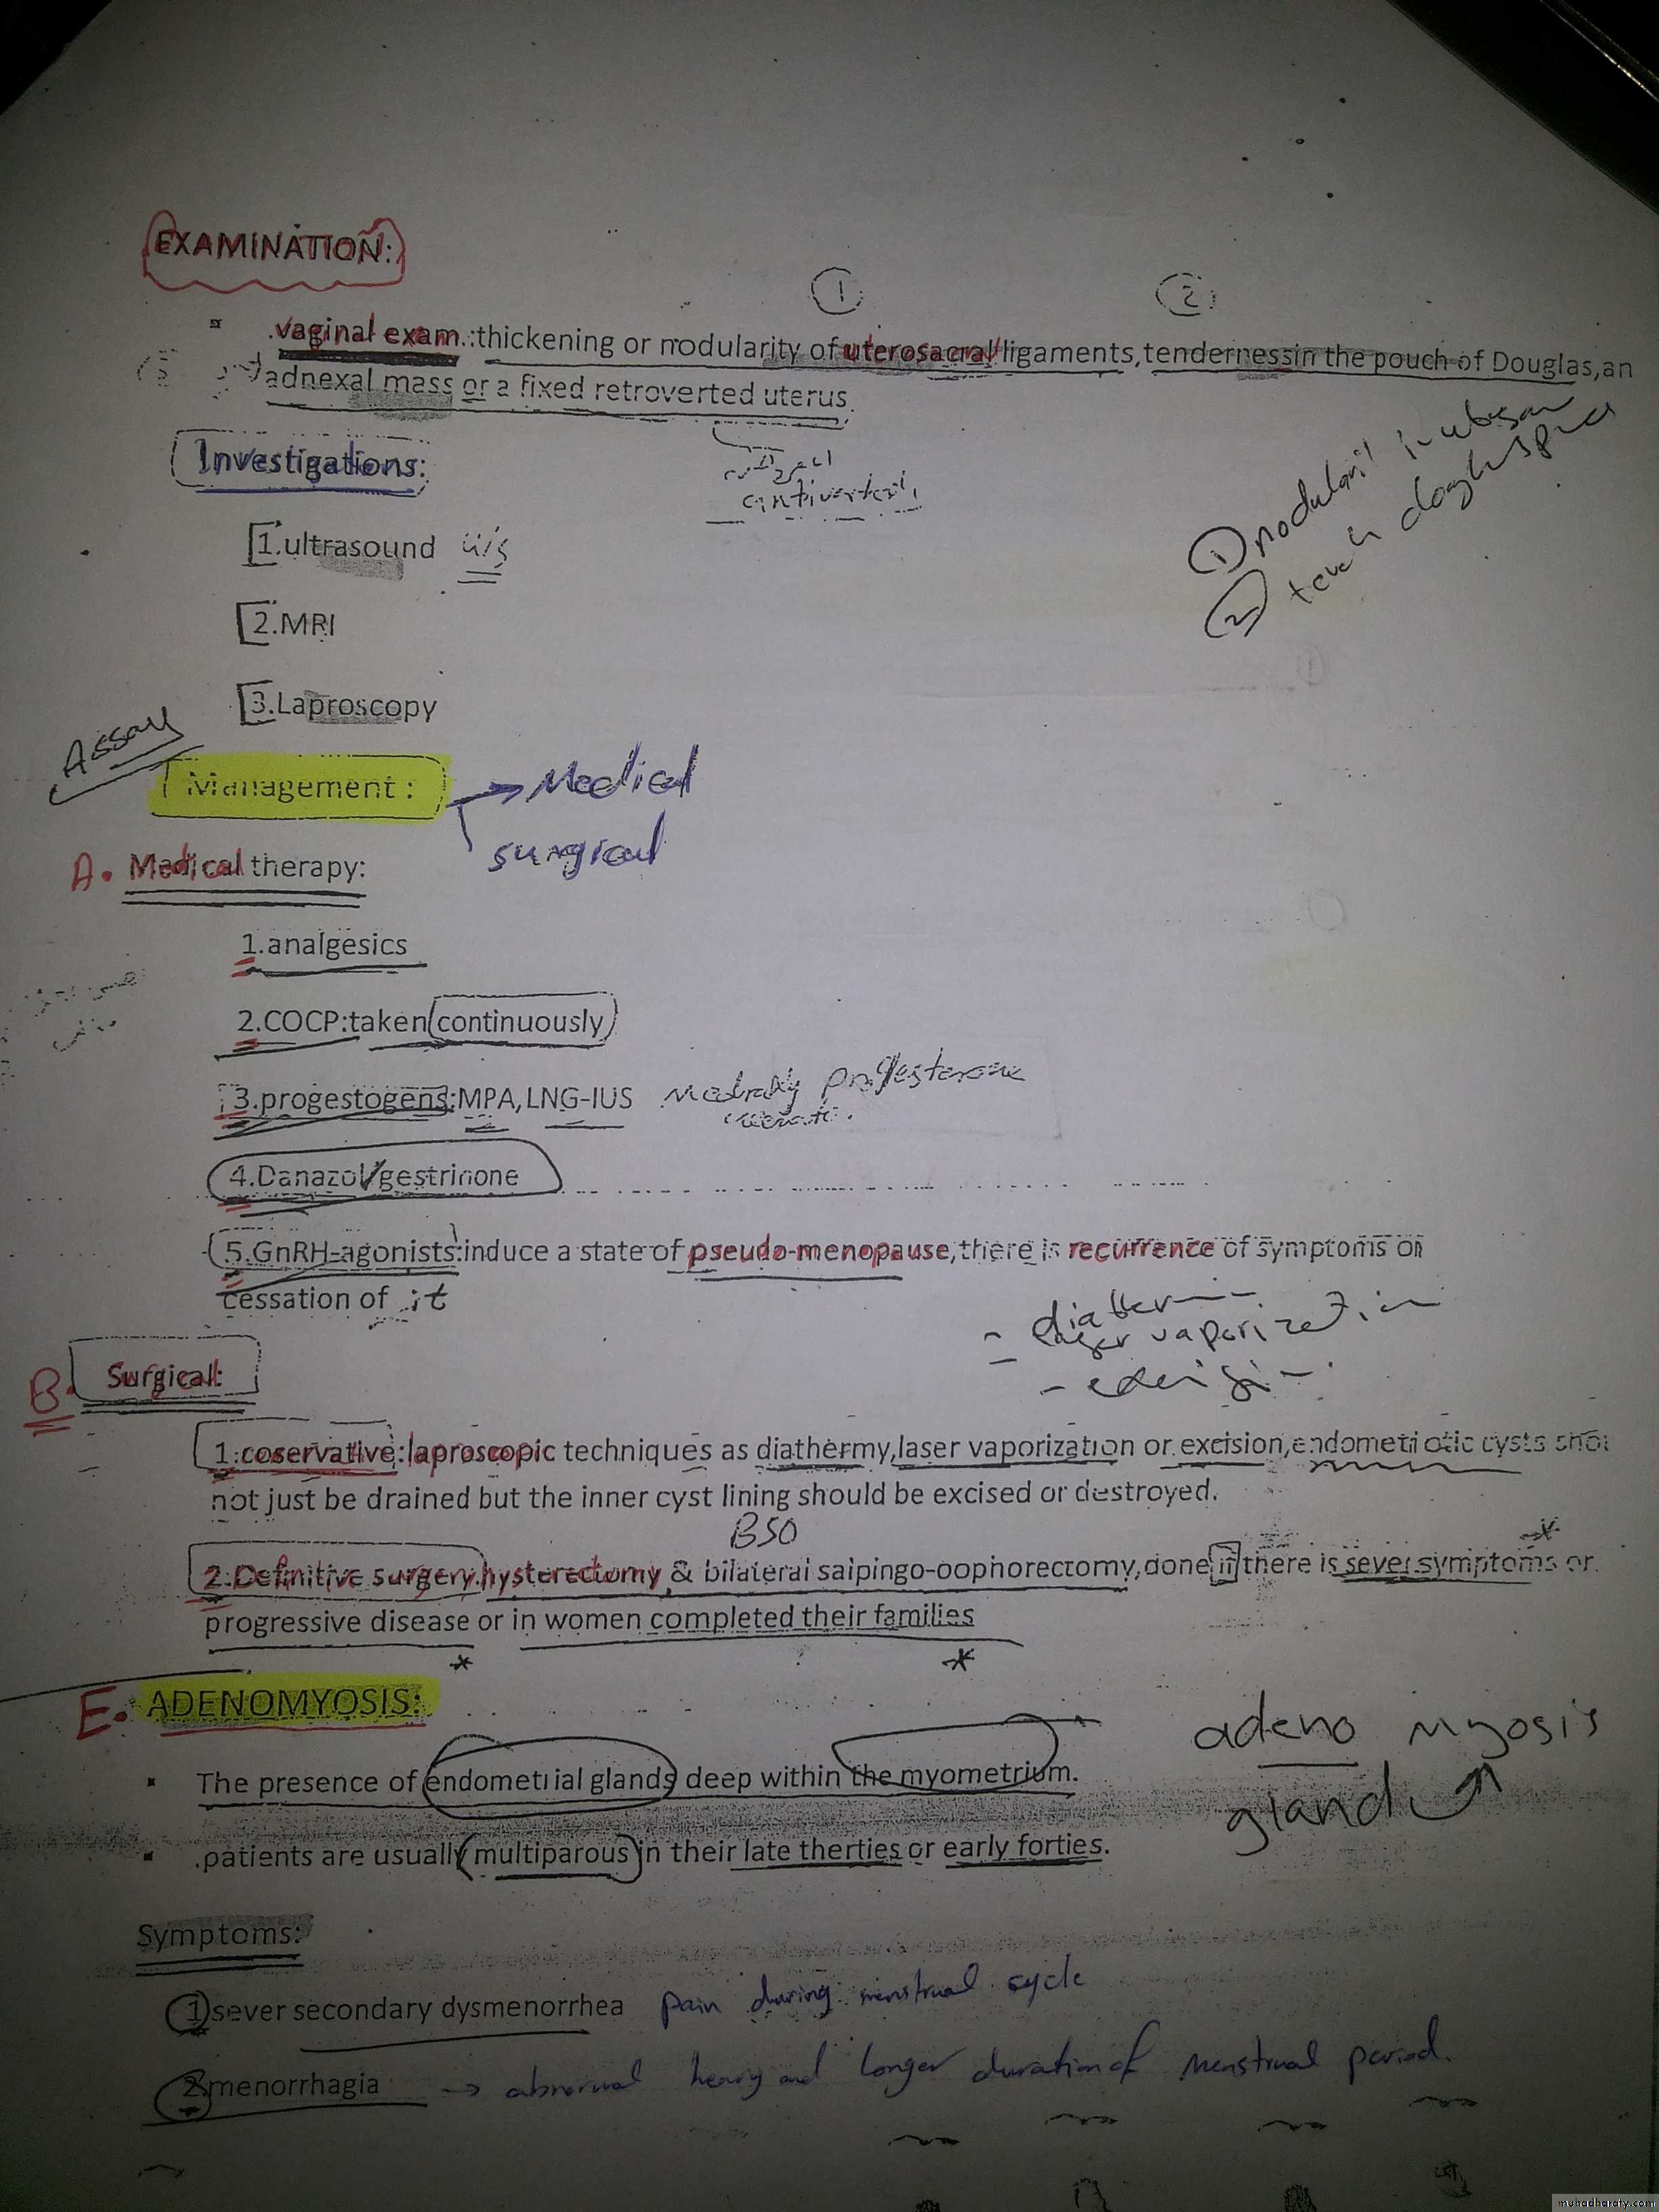 EXAMINATION:
① ②
.vaginal exam.:thickening or nodularity of uterosacral ligaments,tendernessin the pouch of Douglas,an
adnexal mass or a fixed retroverted uterus.
Investigations:
1.ultrasound u/s
① nodularit
②
2.MRI
3.Laproscopy
Assay
Management: → Medical
surgical
A. Medical therapy:
1.analgesics
2.COCP:taken continuously
3.progestogens:MPA,LNG-IUS progesterone
4.Danazol/gestrinone
5.GnRH-agonists:induce a state of pseudo-menopause,there is recurrence of symptoms on
cessation of it
- diather
- laser vaporization
B. Surgical:
1:coservative:laproscopic techniques as diathermy,laser vaporization or excision,endometriotic cysts shou
not just be drained but the inner cyst lining should be excised or destroyed.
BSO
2:Definitive surgery:hysterectomy & bilateral salpingo-oophorectomy,done if there is sever symptoms or
progressive disease or in women completed their families
E. ADENOMYOSIS:
adeno myosis
The presence of endometrial glands deep within the myometrium.
gland
.patients are usually multiparous in their late therties or early forties.
Symptoms:
1)sever secondary dysmenorrhea pain during menstrual cycle
2)menorrhagia → abnormal heavy and longer duration of menstrual period.
muhadharaty.com